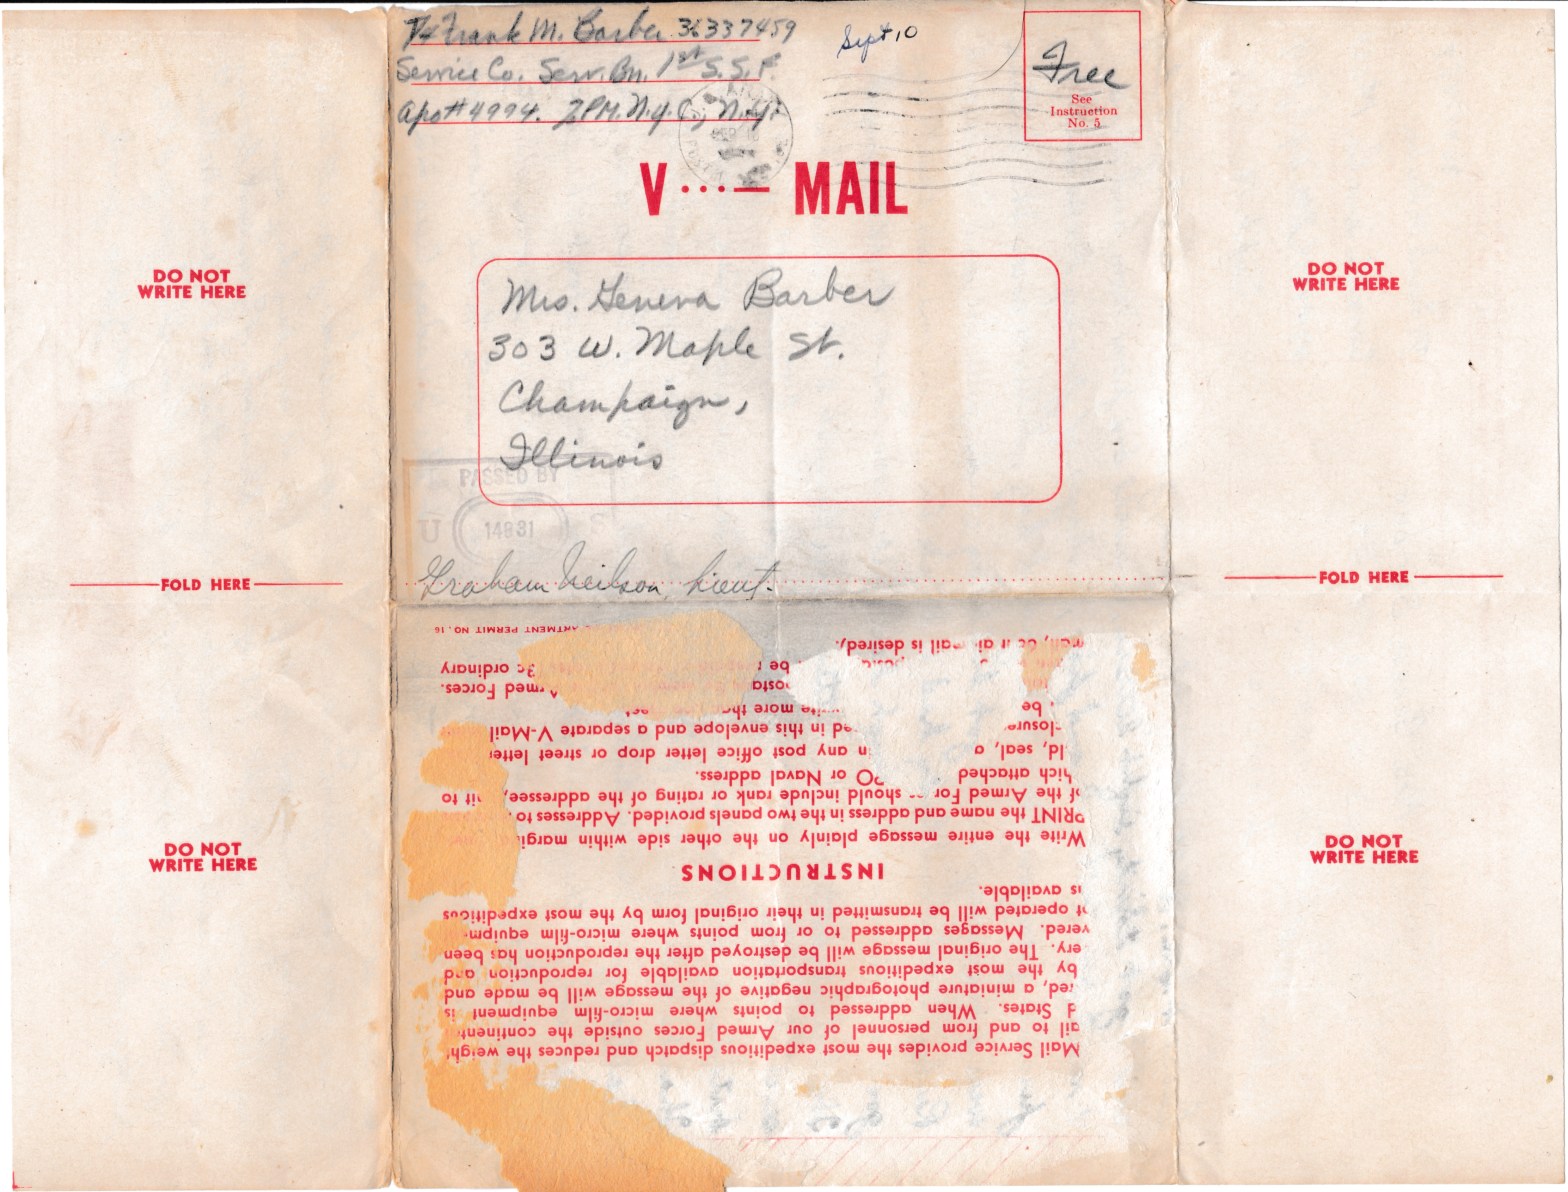 T/4 Frank M. Barber 36337459
Service Co. Serv. Bn. 1st S.S.F.
Apo# 4994. P.M. N.Y.C, N.Y.
Sept 10
Free
See
Instruction
No. 5
V...— MAIL
Mrs. Geneva Barber
303 W. Maple St.
Champaign,
Illinois
PASSED BY
U 14831 S
Graham Neilson, Lieut.
DO NOT
WRITE HERE
DO NOT
WRITE HERE
FOLD HERE
FOLD HERE
DO NOT
WRITE HERE
DO NOT
WRITE HERE
Mail Service provides the most expeditious dispatch and reduces the weigh
ail to and from personnel of our Armed Forces outside the continent
d States. When addressed to points where micro-film equipment is
red, a miniature photographic negative of the message will be made and
by the most expeditious transportation available for reproduction and
ery. The original message will be destroyed after the reproduction has been
vered. Messages addressed to or from points where micro-film equipm
ot operated will be transmitted in their original form by the most expeditious
is available.
INSTRUCTIONS
Write the entire message plainly on the other side within margin
PRINT the name and address in the two panels provided. Addresses to
of the Armed For s should include rank or rating of the addressee, it to
hich attached PO or Naval address.
ld, seal, a in any post office letter drop or street letter
closure ed in this envelope and a separate V-Mail
be write more than
posta Armed Forces.
be 3c ordinary
if air mail is desired,
ARTMENT PERMIT NO. 16